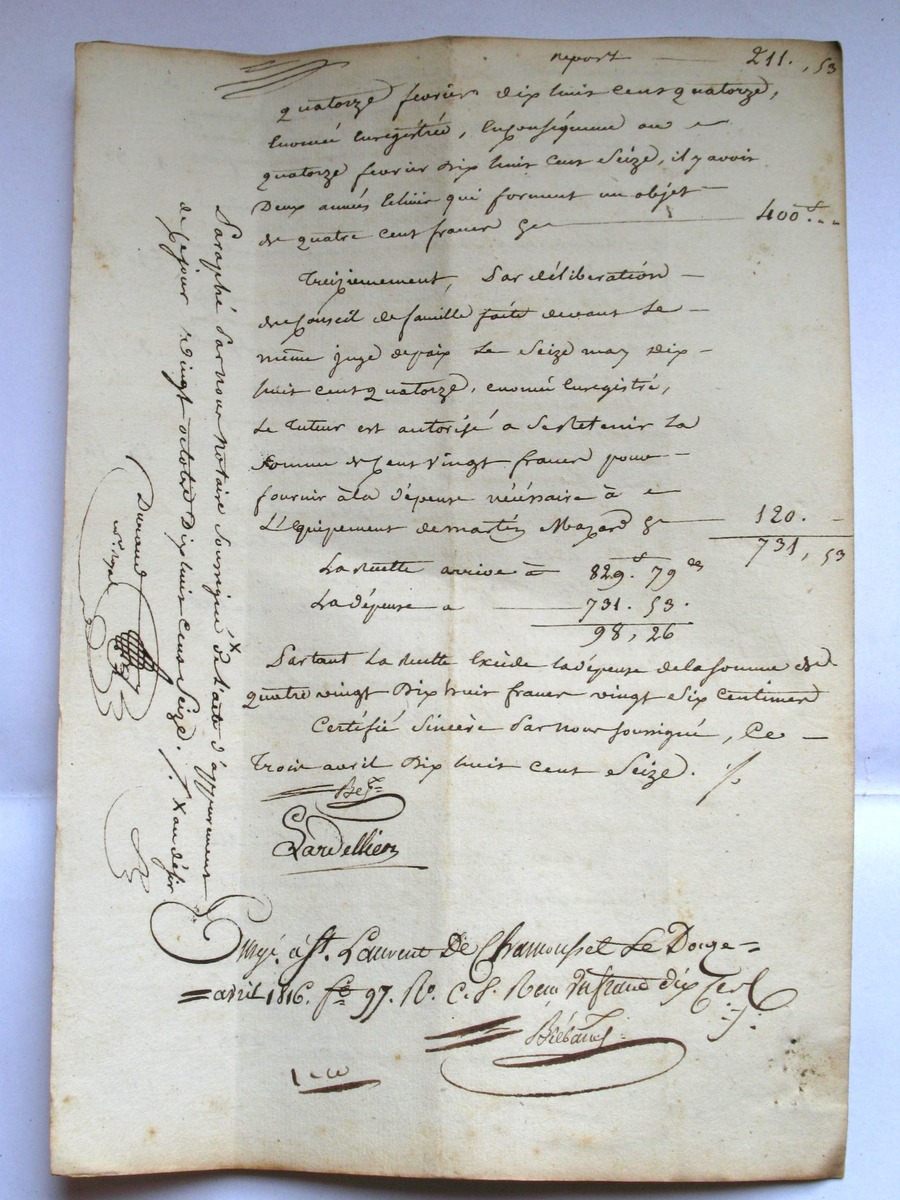 report — 211., 53
quatorze fevrier dix huit cent quatorze,
Enregistrée, En conséquence au
quatorze fevrier dix huit cent Seize, il y avoit
Deux années Echues qui forment un objet
de quatre cent francs — 400.
Treiziemement, Par déliberation
du Conseil de famille faite devant Le
même juge de paix Le Seize may dix
huit cent quatorze, Enregistré,
Le tuteur est autorisé a Se Retenir La
Somme de Cent vingt francs pour
fournir à la dépense nécéssaire à
L'Equipement de Mazard — 120.
731, 53
La Recette arrive à 829. 79
La dépense a — 731. 53.
98, 26
Partant La Recette Excède La dépense de la Somme de
quatre vingt dix huit francs vingt Six Centimes
Certifié Sincère Par nous Soussigné, Ce
Trois avril dix huit cent Seize.
à St. Laurent De Chamousset Le Douze
avril 1816. fo 97. Ro. C. 8. Reçu un franc dix
Paraphé Par nous Notaire Soussigné de L'acte d'appurement
de Ce jour vingt octobre Dix huit cent Seize.
Durand